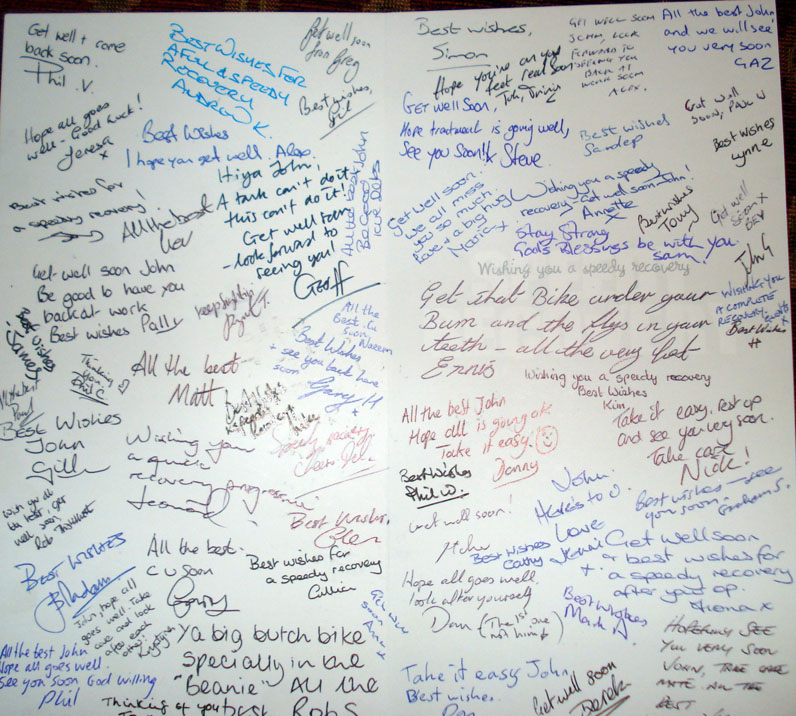 Get well + come
back soon.
Phil .V.
BEST WISHES FOR
A FULL & SPEEDY
RECOVERY
ANDREW K.
Get well soon
from Greg
Best wishes,
Hope all goes
well - Good Luck!
Teresa
x
Best Wishes
I hope you get well. Also
Hiya John,
A tank can't do it,
this can't do it!
Get well
look forward to
seeing you!
Geoff
Best wishes for
a speedy recovery!
All the best
All the best John
Get well soon John
Be good to have you
back at work
Best wishes Pally
keep smiling
Best Wishes
All the
Best. Cu
soon Naeem
Best Wishes
+ see you back here
soon
Gary H
x
Thinking
of you
Phil C.
All the best
Matt
Best Wishes
All the best
BEST WISHES
John
Gill
Wishing you
a quick
recovery
Speedy recovery
Wish you all
the best, get
well soon
Rob
Best Wishes,
Glen
BEST WISHES
All the best.
C U Soon
Gary
Best wishes for
a speedy recovery
John, hope all
goes well. Take
care and look
after each
other!
Get well
soon
All the best John
Hope all goes well.
See you soon God willing
Phil
Ya big butch bike
Specially in the
"Beanie" All the
best Rob S
Thinking of you
Best wishes,
Simon
Hope you're on your
feet real soon
GET WELL SOON
JOHN, LOOK
FORWARD TO
SEEING YOU
BACK AT
WORK SOON
ALEX.
All the best John
and we will see
you very soon
GAZ
GET Well Soon,
Hope treatment is going well,
See you Soon!! x Steve
Best wishes
Sandep
Get well
soon, Paul V
Best wishes
Lynne
Get well soon.
we all miss
you so much.
Love & a big hug
Marie x
Wishing you a speedy
recovery. Get well soon John!
Annette
x
Best wishes
Tony
Get well
soon x
BEV
Stay Strong
God's Blessings be with you.
Sam
John G
Wishing you a speedy recovery
WISHING YOU
A COMPLETE
RECOVERY.
Best Wishes
Get that Bike under your
Bum and the flys in your
teeth - all the very best
Ennis
Wishing you a speedy recovery
Best Wishes
Kim
All the best John
Hope all is going ok
Take it easy!
Danny
Take it easy, rest up
and see you very soon.
Take care
Nick!
Best Wishes
Phil W.
John.
Here's to U.
Love
Best wishes - see
you soon.
Graham S.
Get well soon!
Best wishes
Cathy
x
Get well soon
& best wishes for
a speedy recovery
after your op.
Fiona x
Hope all goes well.
look after yourself
Dan (The 1st one
not him)
Best Wishes
Mark
Take it easy John,
Best wishes.
Get well soon
Derek
HOPEFULLY SEE
YOU VERY SOON
JOHN, TAKE CARE
MATE. ALL THE
BEST